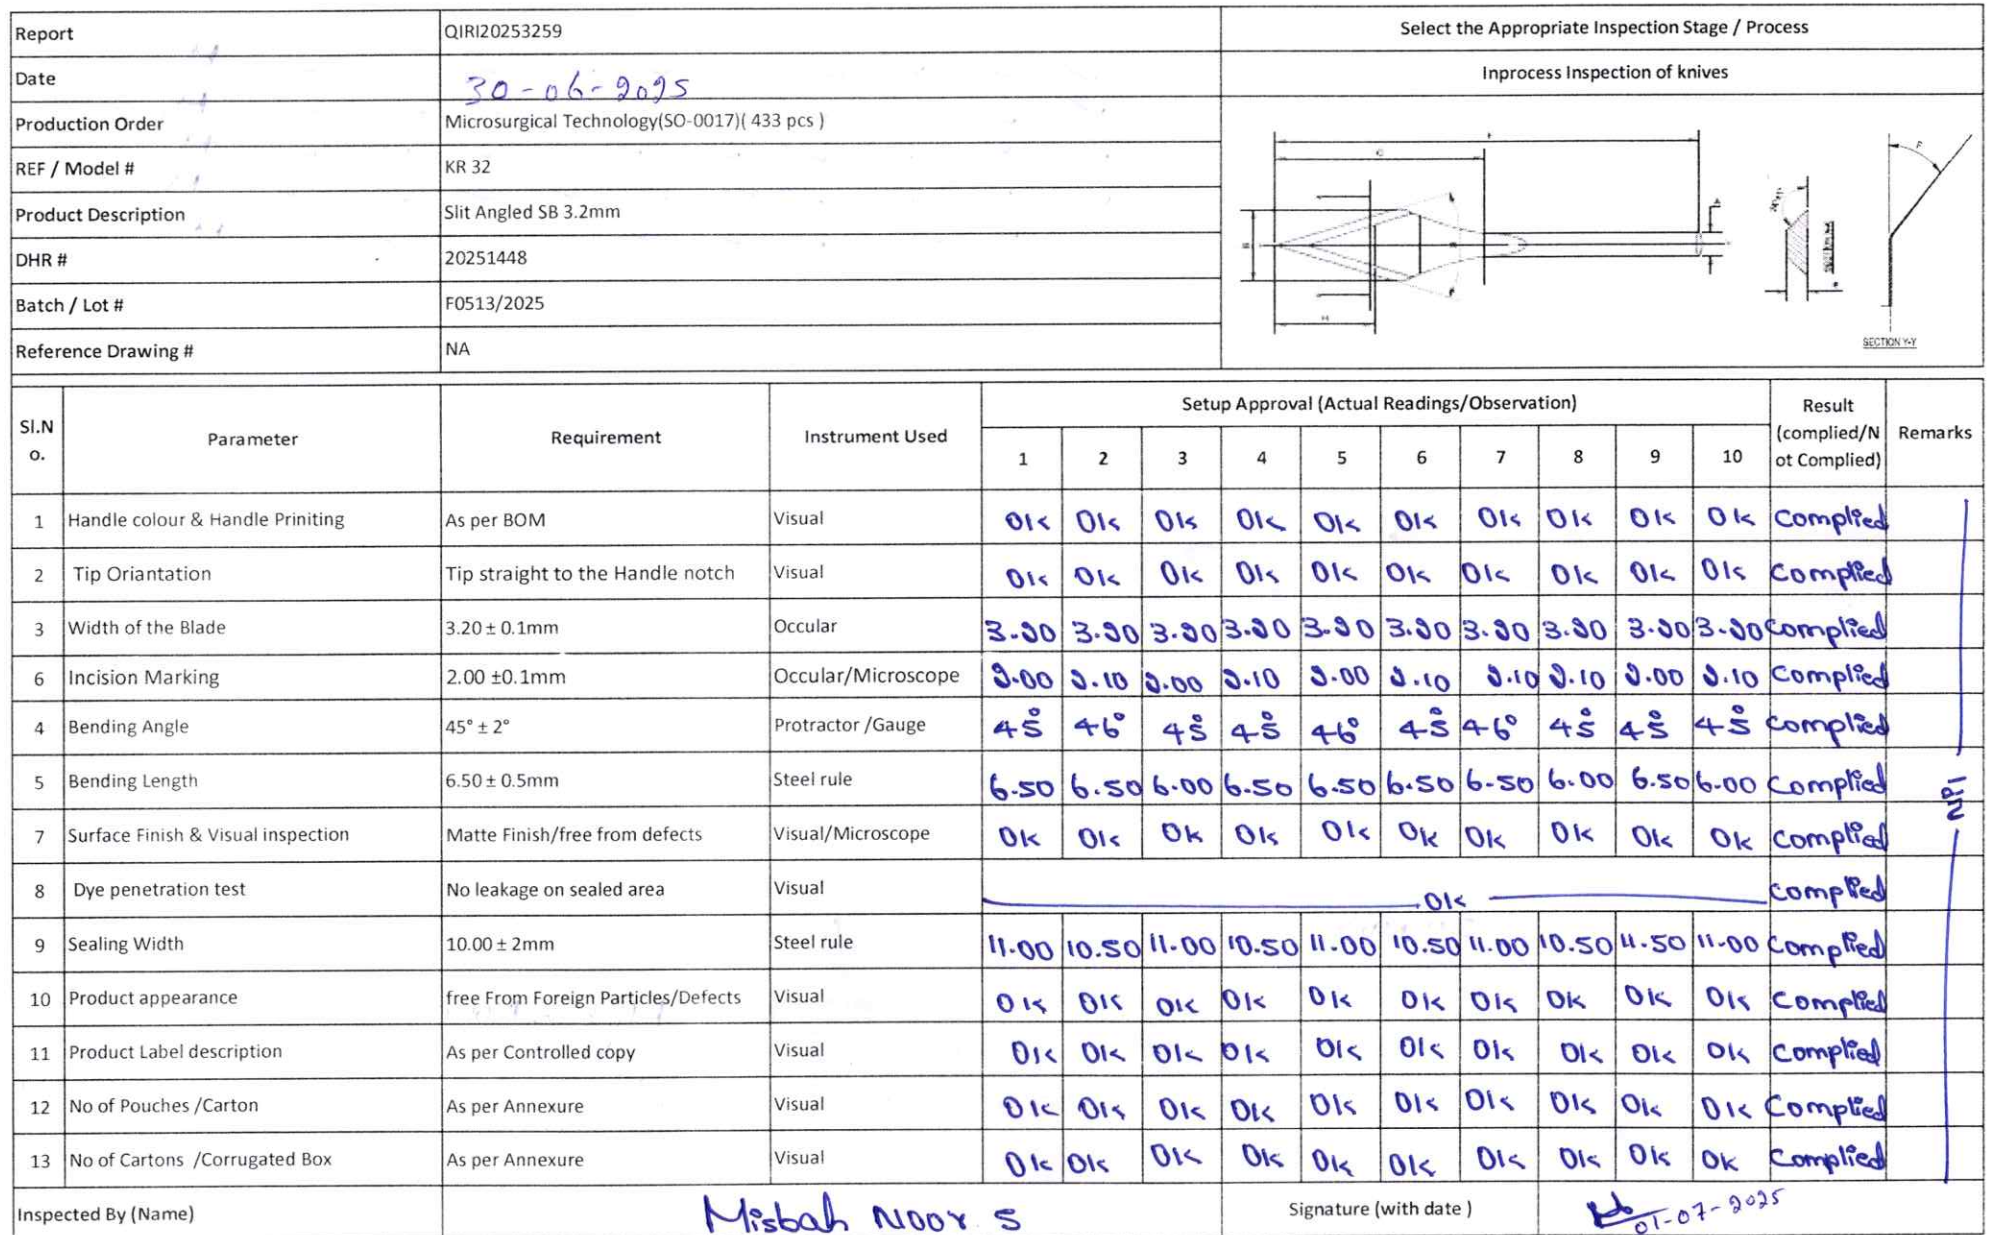 Report QIRI20253259 Select the Appropriate Inspection Stage / Process
Date 30-06-2025 Inprocess Inspection of knives
Production Order Microsurgical Technology(SO-0017)( 433 pcs )
REF / Model # KR 32
Product Description Slit Angled SB 3.2mm
DHR # 20251448
Batch / Lot # F0513/2025
Reference Drawing # NA
SECTION Y-Y
Sl.N o. Parameter Requirement Instrument Used Setup Approval (Actual Readings/Observation) Result (complied/N ot Complied) Remarks
1 2 3 4 5 6 7 8 9 10
1 Handle colour & Handle Priniting As per BOM Visual Ok Ok Ok Ok Ok Ok Ok Ok Ok Ok Complied
2 Tip Oriantation Tip straight to the Handle notch Visual Ok Ok Ok Ok Ok Ok Ok Ok Ok Ok Complied
3 Width of the Blade 3.20 ± 0.1mm Occular 3.20 3.20 3.20 3.20 3.20 3.20 3.20 3.20 3.20 3.20 Complied
6 Incision Marking 2.00 ±0.1mm Occular/Microscope 2.00 2.10 2.00 2.10 2.00 2.10 2.10 2.10 2.00 2.10 Complied
4 Bending Angle 45° ± 2° Protractor /Gauge 45° 46° 45° 45° 46° 45° 46° 45° 45° 45° Complied
5 Bending Length 6.50 ± 0.5mm Steel rule 6.50 6.50 6.00 6.50 6.50 6.50 6.50 6.00 6.50 6.00 Complied
Nil
7 Surface Finish & Visual inspection Matte Finish/free from defects Visual/Microscope Ok Ok Ok Ok Ok Ok Ok Ok Ok Ok Complied
8 Dye penetration test No leakage on sealed area Visual Ok Complied
9 Sealing Width 10.00 ± 2mm Steel rule 11.00 10.50 11.00 10.50 11.00 10.50 11.00 10.50 11.50 11.00 Complied
10 Product appearance free From Foreign Particles/Defects Visual Ok Ok Ok Ok Ok Ok Ok Ok Ok Ok Complied
11 Product Label description As per Controlled copy Visual Ok Ok Ok Ok Ok Ok Ok Ok Ok Ok Complied
12 No of Pouches /Carton As per Annexure Visual Ok Ok Ok Ok Ok Ok Ok Ok Ok Ok Complied
13 No of Cartons /Corrugated Box As per Annexure Visual Ok Ok Ok Ok Ok Ok Ok Ok Ok Ok Complied
Inspected By (Name) Misbah Noor S Signature (with date ) 01-07-2025